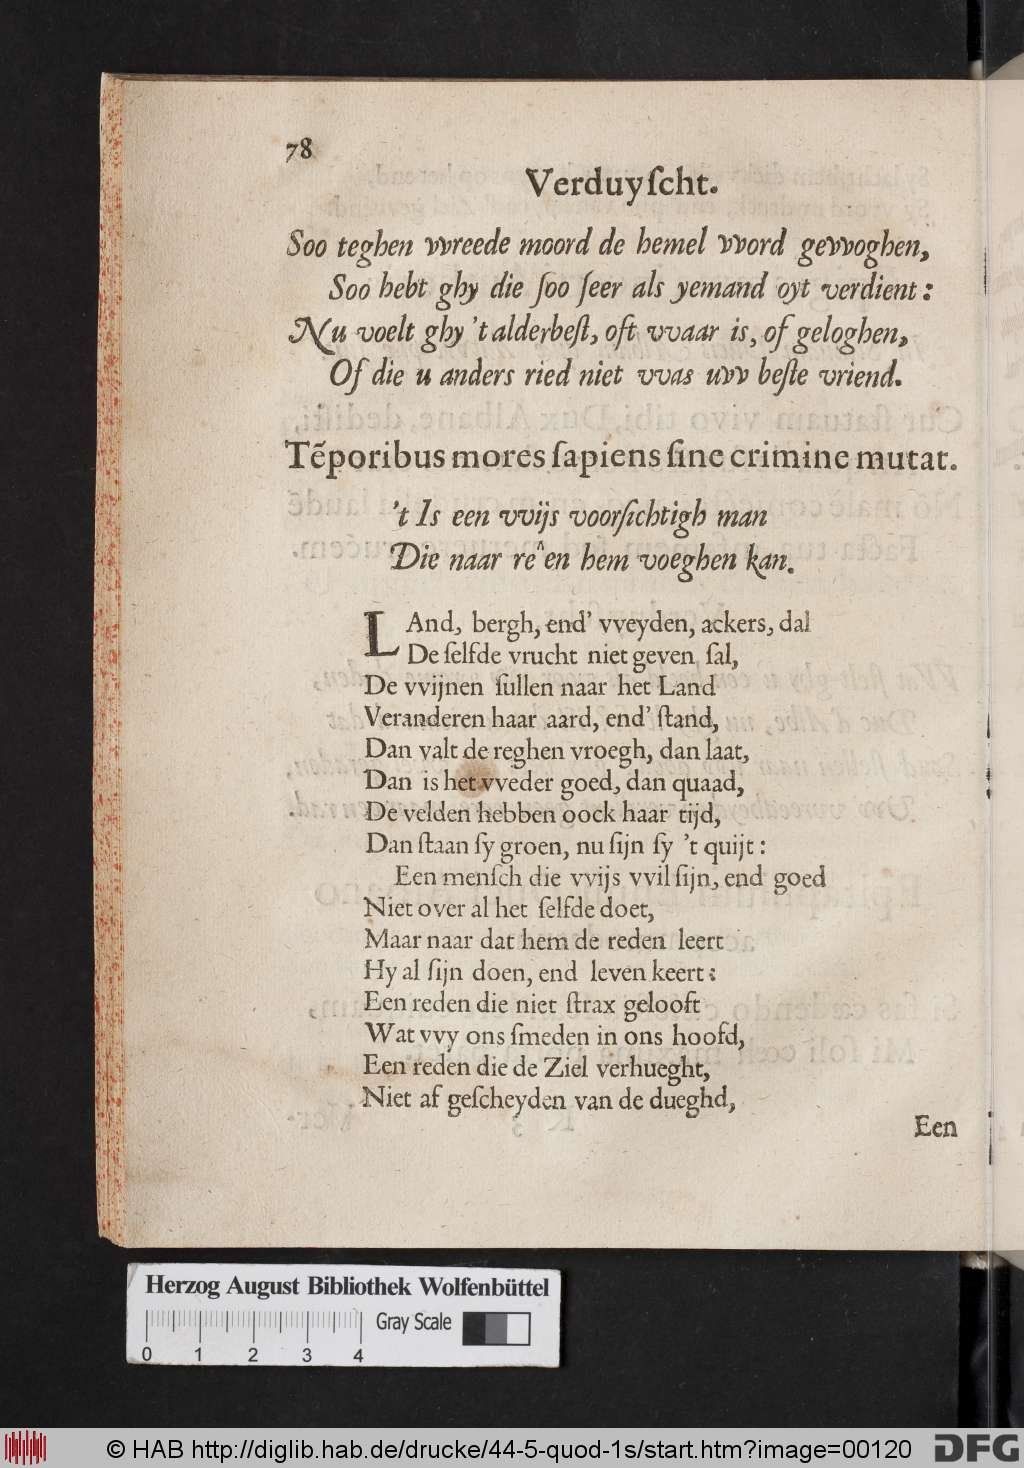 78
Verduyſcht.
Soo teghen vvreede moord de hemel vvord gevvoghen,
Soo hebt ghy die ſoo ſeer als yemand oyt verdient:
Nu voelt ghy 't alderbeſt, oft vvaar is, of geloghen,
Of die u anders ried niet vvas uvv beſte vriend.
Tẽporibus mores ſapiens ſine crimine mutat.
't Is een vvijs voorſichtigh man
Die naar re^en hem voeghen kan.
LAnd, bergh, end' vveyden, ackers, dal
De ſelfde vrucht niet geven ſal,
De vvijnen ſullen naar het Land
Veranderen haar aard, end' ſtand,
Dan valt de reghen vroegh, dan laat,
Dan is het vveder goed, dan quaad,
De velden hebben oock haar tijd,
Dan ſtaan ſy groen, nu ſijn ſy 't quijt:
Een menſch die vvijs vvil ſijn, end goed
Niet over al het ſelfde doet,
Maar naar dat hem de reden leert
Hy al ſijn doen, end leven keert:
Een reden die niet ſtrax gelooft
Wat vvy ons ſmeden in ons hoofd,
Een reden die de Ziel verhueght,
Niet af geſcheyden van de dueghd,
Een
Herzog August Bibliothek Wolfenbüttel
Gray Scale
0 1 2 3 4
© HAB http://diglib.hab.de/drucke/44-5-quod-1s/start.htm?image=00120
DFG